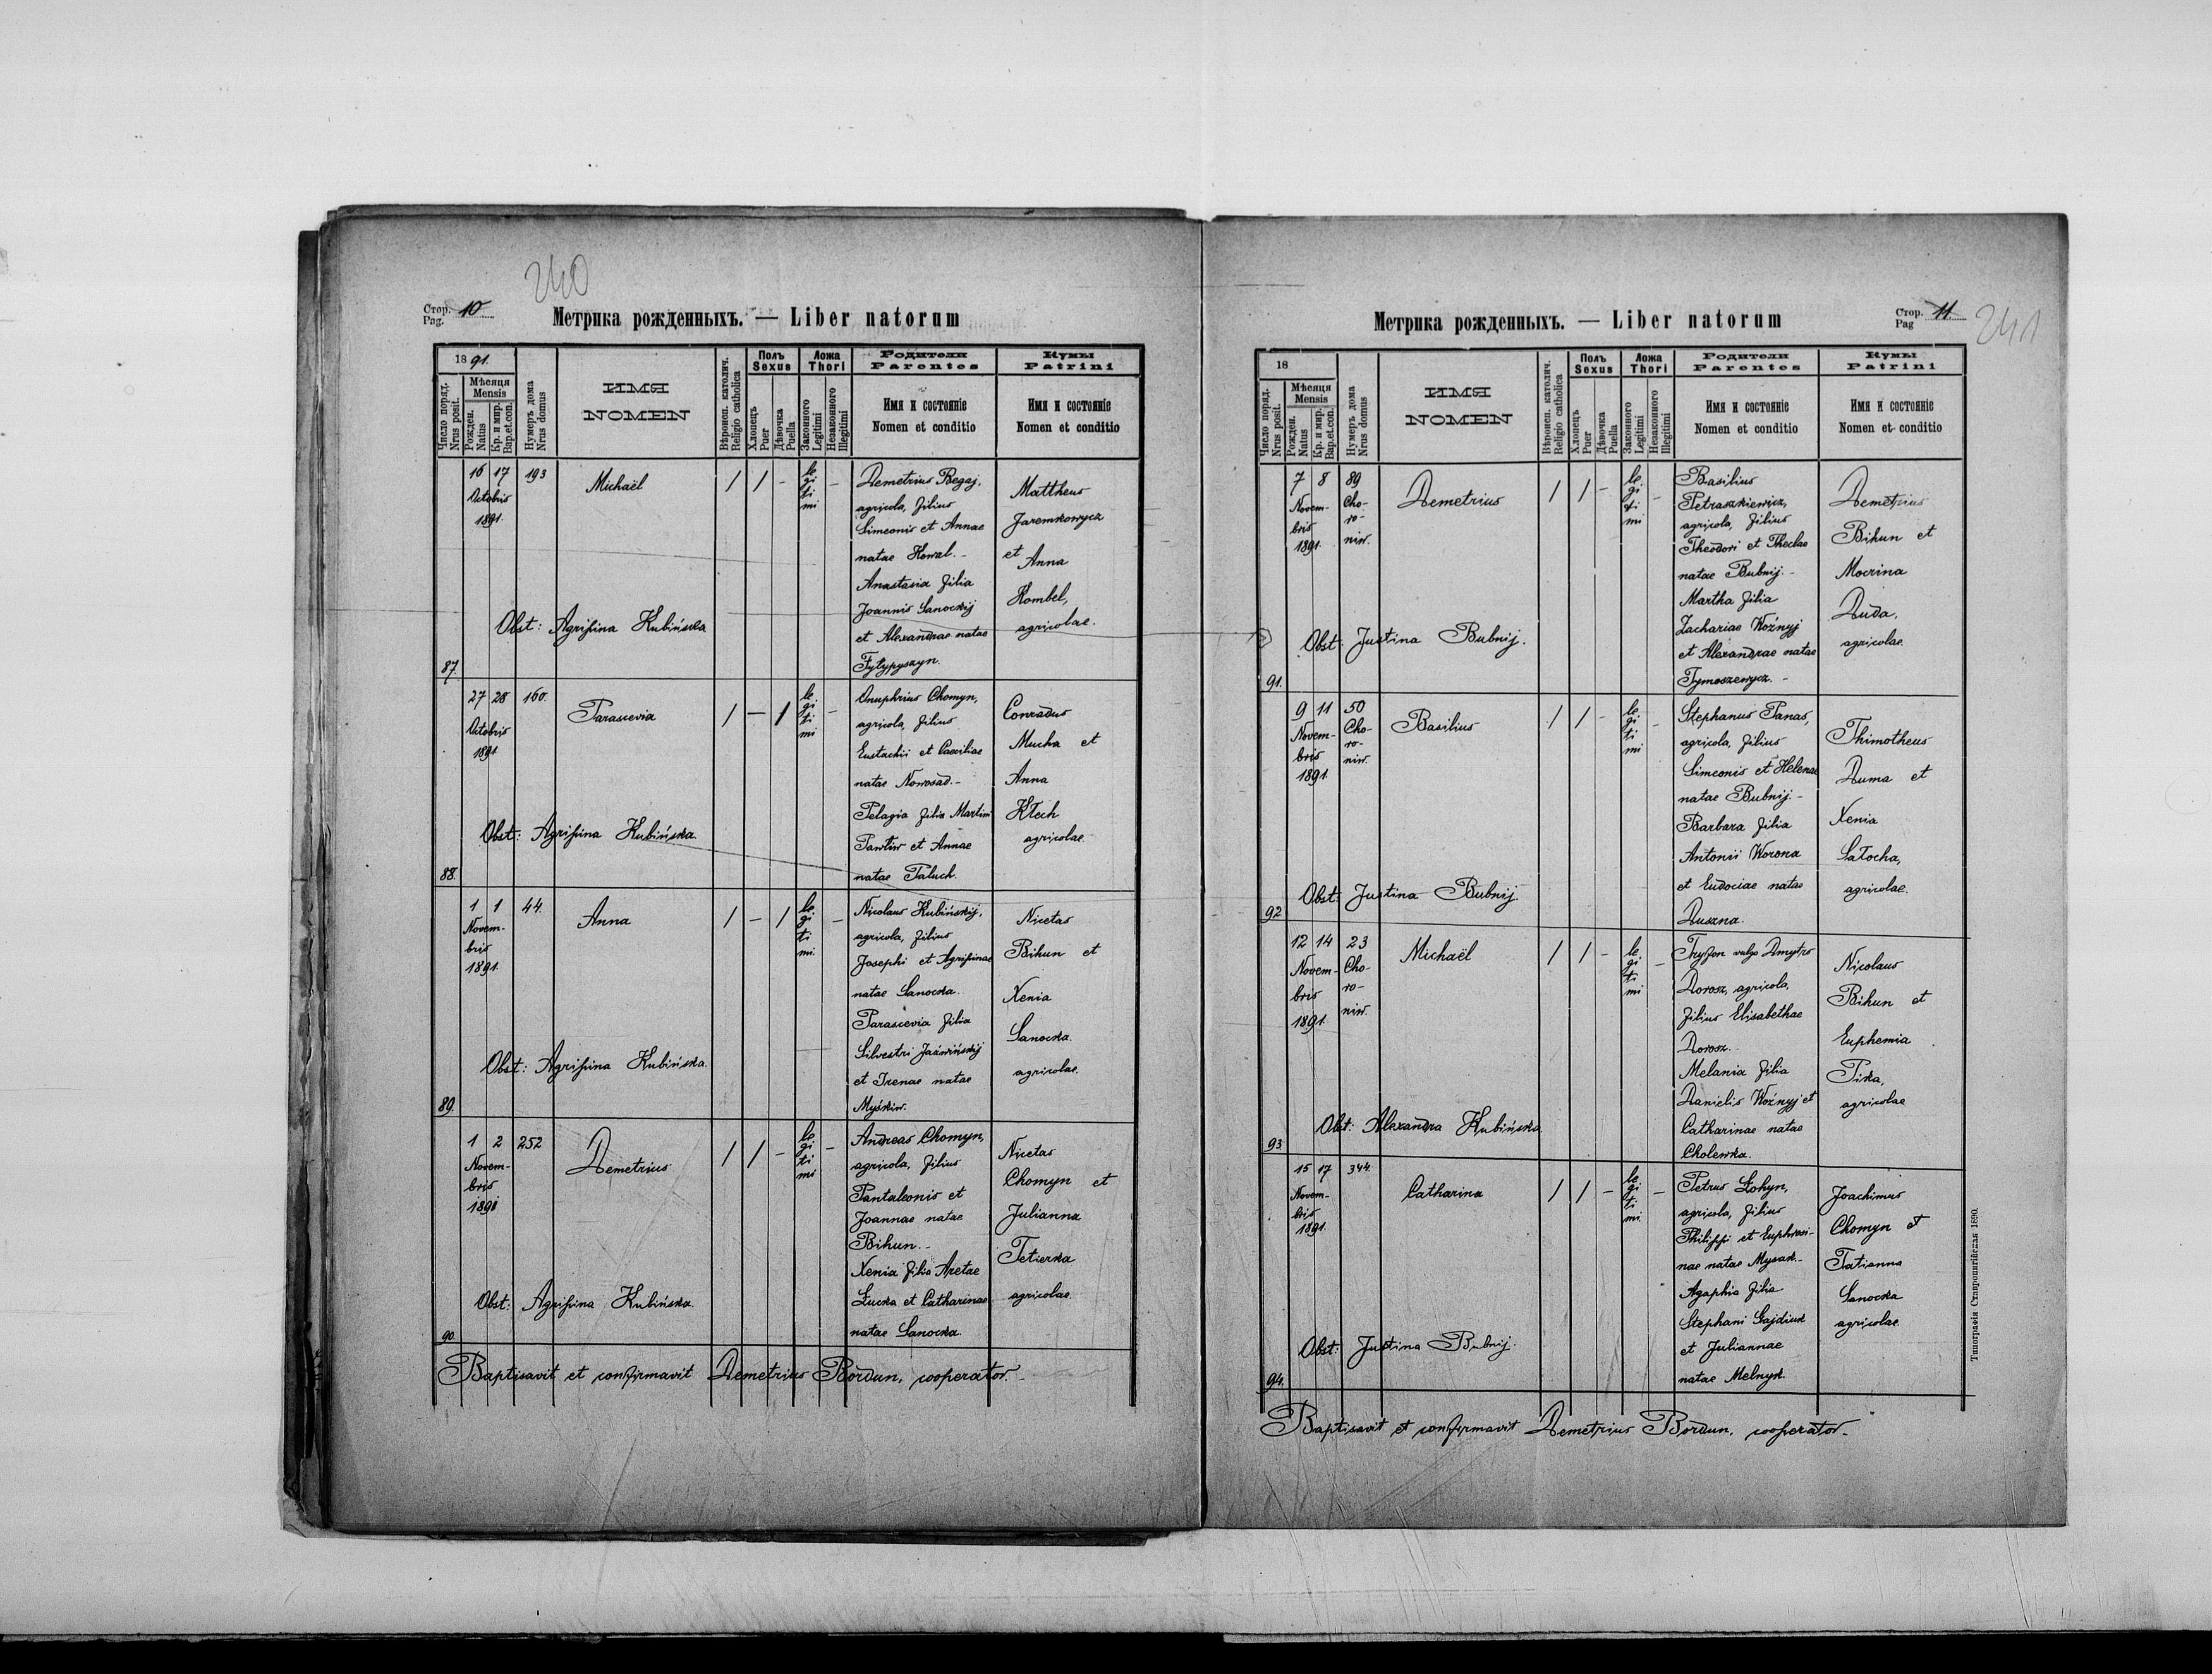 240
Стор. 10
Pag.
Метрика рожденныхъ. — Liber natorum
1891.
Число поряд.
Nrus posit.
Мѣсяця
Mensis
Рожден.
Natus
Кр. и мир.
Bap.et.con.
Нумеръ дома
Nrus domus
ИМЯ
NOMEN
Вѣроисп. католич.
Religio catholica
Полъ
Sexus
Хлопецъ
Puer
Дѣвочка
Puella
Ложа
Thori
Законного
Legitimi
Незаконного
Illegitimi
Родители
Parentes
Имя и состоянiе
Nomen et conditio
Кумы
Patrini
Имя и состоянiе
Nomen et conditio
87.
16 17
Octobris
1891.
193
Michaël
/ / -
le
gi
ti
mi
-
Demetrius Begaj,
agricola, filius
Simeonis et Annae
natae Kowal. -
Anastasia filia
Joannis Sanockij
et Alexandrae natae
Tytypyszyn.
Mattheus
Jaremkowycz
et
Anna
Kombel,
agricolae.
Obst: Agrifina Kubińska
88.
27 28
Octobris
1891
160.
Parascevia
/ — /
le
gi
ti
mi
-
Onuphrius Chomyn,
agricola, filius
Eustachii et Caeciliae
natae Nowosad. -
Pelagia filia Martini
Pawliw et Annae
natae Paluch.
Conradus
Mucha et
Anna
Kłech
agricolae
Obst: Agrifina Kubińska.
89.
1 1
Novem-
bris
1891.
44.
Anna
/ - /
le
gi
ti
mi.
-
Nicolaus Kubińskij,
agricola, filius
Josephi et Agrifinae
natae Sanocka.
Parascevia filia
Silvestri Jaświńskij
et Irenae natae
Myśkiw.
Nicetas
Bihun et
Xenia
Sanocka
agricolae.
Obst: Agrifina Kubińska.
90.
1 2
Novem-
bris
1891
252
Demetrius
/ / -
le
gi
ti
mi
-
Andreas Chomyn,
agricola, filius
Pantaleonis et
Joannae natae
Bihun. -
Xenia filia Aretae
Łucka et Catharinae
natae Sanocka.
Nicetas
Chomyn et
Julianna
Tetierka
agricolae
Obst: Agrifina Kubińska.
Baptisavit et confirmavit Demetrius Bordun, cooperator. -
Стор. 11.
Pag
241
Метрика рожденныхъ. — Liber natorum
18
Число поряд.
Nrus posit.
Мѣсяця
Mensis
Рожден.
Natus
Кр. и мир.
Bap.et.con.
Нумеръ дома
Nrus domus
ИМЯ
NOMEN
Вѣроисп. католич.
Religio catholica
Полъ
Sexus
Хлопецъ
Puer
Дѣвочка
Puella
Ложа
Thori
Законного
Legitimi
Незаконного
Illegitimi
Родители
Parentes
Имя и состоянiе
Nomen et conditio
Кумы
Patrini
Имя и состоянiе
Nomen et conditio
91.
7 8
Novem-
bris
1891.
89
Cho-
ro-
niw.
Demetrius
/ / -
le
gi
ti
mi
-
Basilius
Petraszkiewicz,
agricola, filius
Theodori et Theclae
natae Bubnij. -
Martha filia
Zachariae Woźnyj
et Alexandrae natae
Tymoszewycz. -
Demetrius
Bihun et
Mocrina
Duda,
agricolae.
Obst: Justina Bubnij.
92
9 11
Novem-
bris
1891.
50
Cho-
ro-
niw.
Basilius
/ / -
le
gi
ti
mi
-
Stephanus Panas,
agricola, filius
Simeonis et Helenae
natae Bubnij. -
Barbara filia
Antonii Worona
et Eudociae natae
Duszna.
Thimotheus
Duma et
Xenia
Sałocha,
agricolae.
Obst: Justina Bubnij.
93.
12 14
Novem-
bris
1891.
23
Cho-
ro-
niw.
Michaël
/ / -
le
gi
ti
mi
-
Tryfon vulgo Dmytro
Dorosz, agricola,
filius Elisabethae
Dorosz. -
Melania filia
Danielis Woźnyj et
Catharinae natae
Cholewka.
Nicolaus
Bihun et
Euphemia
Pika,
agricolae
Obst: Alexandra Kubińska
94.
15 17
Novem-
bris
1891.
344.
Catharina
/ / -
le
gi
ti
mi.
-
Petrus Łohyn,
agricola, filius
Philippi et Euphrosi-
nae natae Mysak. -
Agaphia filia
Stephani Gajdiuk
et Juliannae
natae Melnyk.
Joachimus
Chomyn et
Tatianna
Sanocka
agricolae.
Obst: Justina Bubnij.
Baptisavit et confirmavit Demetrius Bordun, cooperator. -
Типографія Ставропигійская 1890.